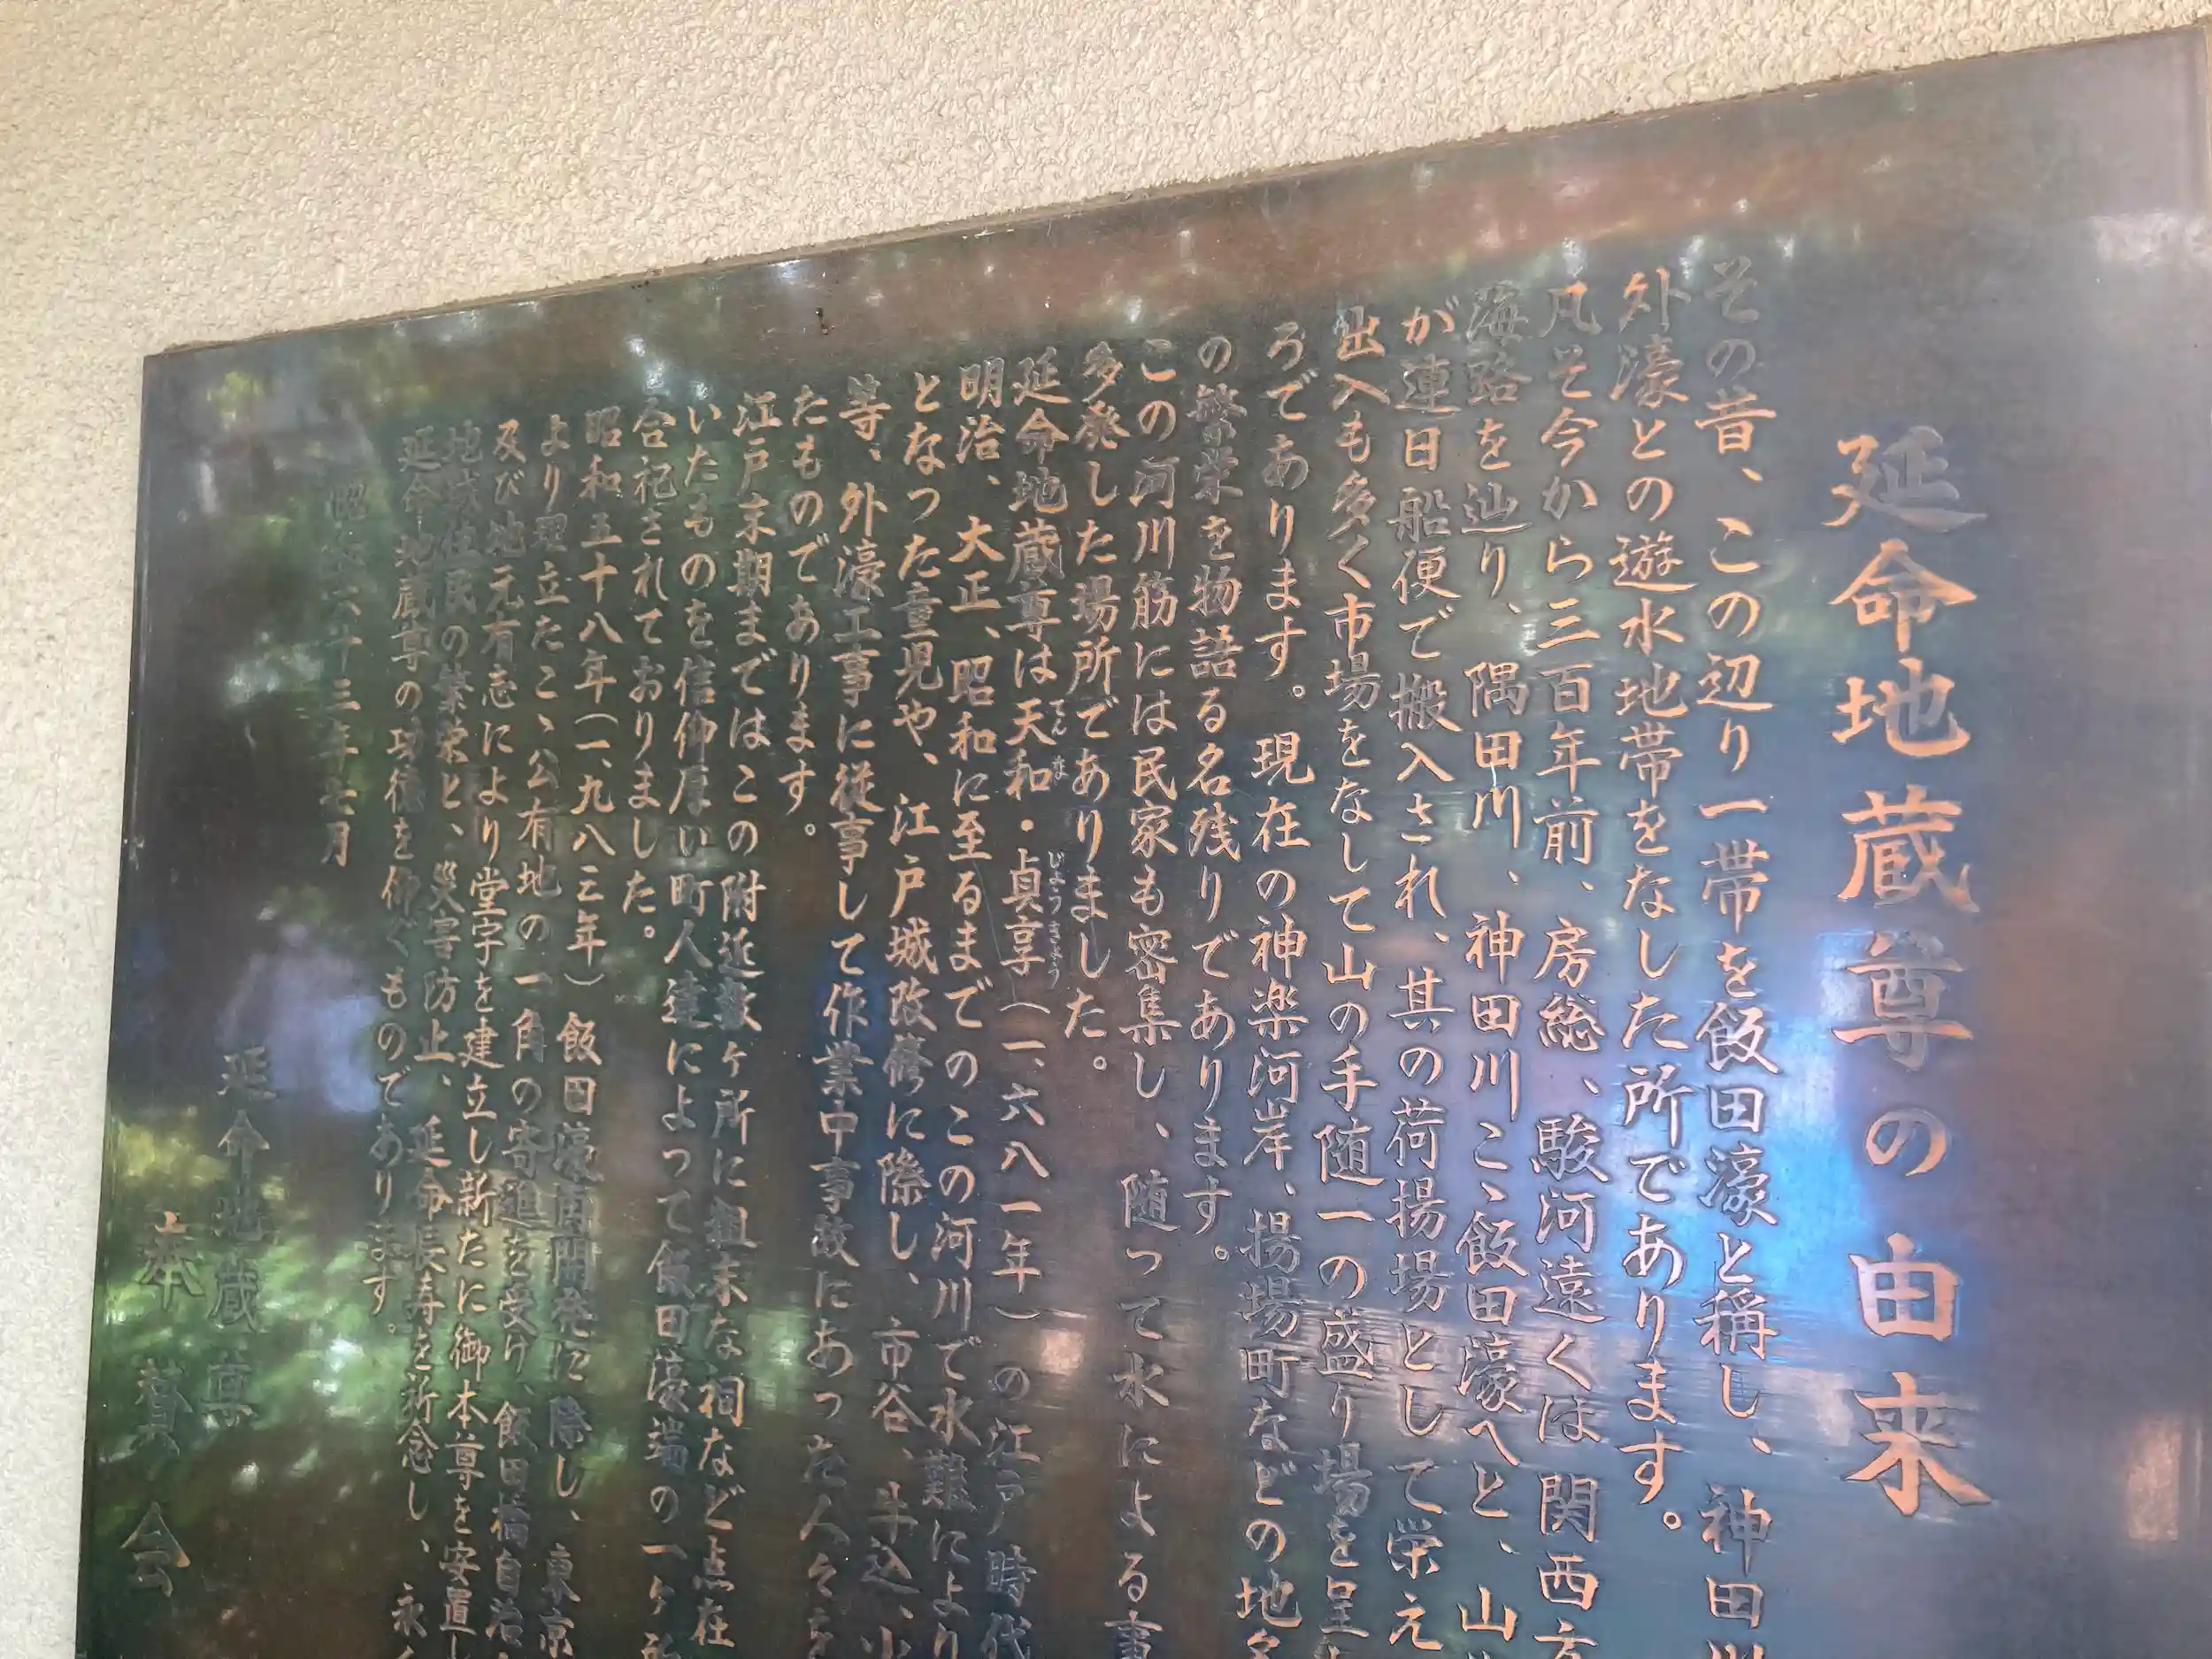 延命地蔵尊の由来
その昔、この辺り一帯を飯田濠と称し、神田川
外濠との遊水地帯をなした所であります。
凡そ今から三百年前、房総、駿河遠くは関西方
海路を辿り、隅田川、神田川こゝ飯田濠へと、山
が連日船便で搬入され、其の荷揚場として栄え
出入も多く市場をなして山の手随一の盛り場を呈
ろであります。現在の神楽河岸、揚場町などの地名
の繁栄を物語る名残りであります。
この河川筋には民家も密集し、随って水による事
多発した場所でありました。
延命地蔵尊は天和・貞享（一、六八一年）の江戸時代
てんな
じょうきょう
明治、大正、昭和に至るまでのこの河川で水難により
となつた童児や、江戸城改修に際し、市谷、牛込、小
等、外濠工事に従事して作業中事故にあった人々を
たものであります。
江戸末期まではこの附近数ヶ所に粗末な祠など点在
いたものを信仰厚い町人達によって飯田濠端の一ヶ所
合祀されておりました。
昭和五十八年（一、九八三年）飯田濠再開発に際し、東京
より現立たこゝ公有地の一角の寄進を受け、飯田橋自治
及び地元有志により堂宇を建立し新たに御本尊を安置し
地域住民の繁栄と、災害防止、延命長寿を祈念し、永く
延命地蔵尊の功徳を仰ぐものであります。
昭和六十三年七月
延命地蔵尊
奉賛会